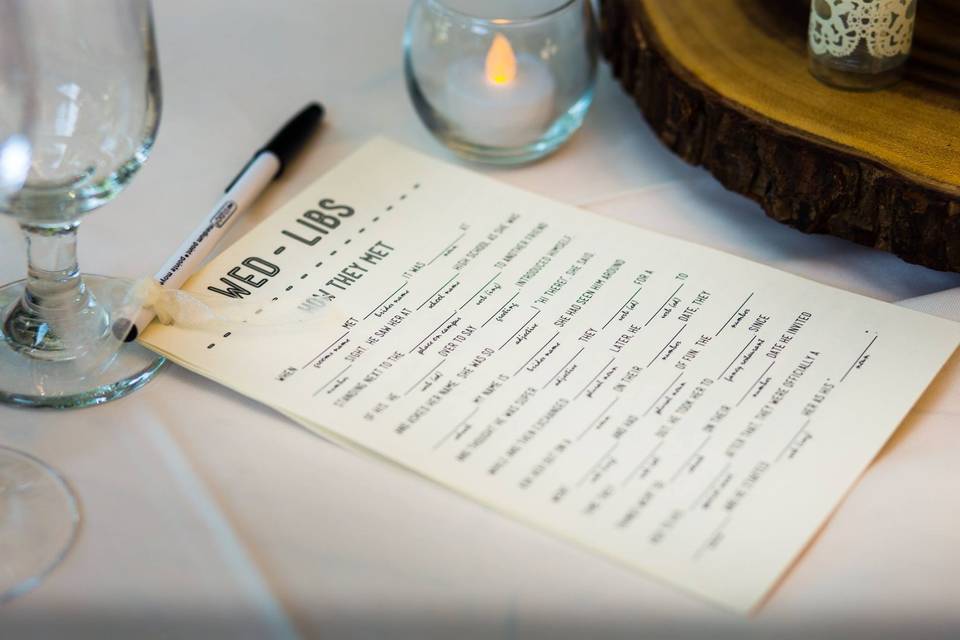 WED-LIBS
HOW THEY MET
WHEN MET IT WAS AT
grooms name brides name
SIGHT. HE SAW HER AT HIGH SCHOOL AS SHE WAS
number school name
STANDING NEXT TO THE TO ANOTHER FRIEND
place on campus verb (ing)
OF HIS. HE OVER TO SAY INTRODUCED HIMSELF
verb (ed) greeting
AND ASKED HER NAME. SHE WAS SO "HI THERE!" SHE SAID.
adjective
MY NAME IS SHE HAD SEEN HIM AROUND
brides name
AND THOUGHT HE WAS SUPER THEY FOR A
adjective verb (ed)
WHILE AND THEN EXCHANGED LATER, HE TO
plural noun verb (ed)
HER OUT ON A ON THEIR DATE, THEY
noun number
AND HAD OF FUN. THE
plural noun number
THEY BUT HE TOOK HER TO SINCE
fancy restaurant
THINGS WENT SO ON THEIR DATE HE INVITED
number
AFTER THAT THEY WERE OFFICIALLY A
AND HE STARTED HER AS HIS
verb (ing) noun